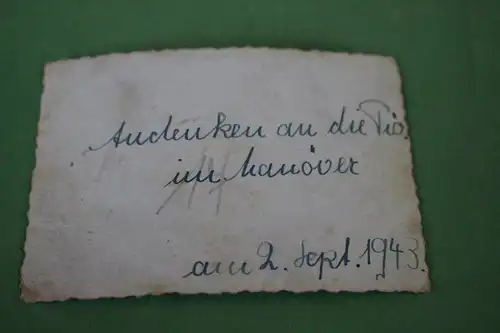 Andenken an die Pio.
im Manöver
am 2. Sept. 1943.